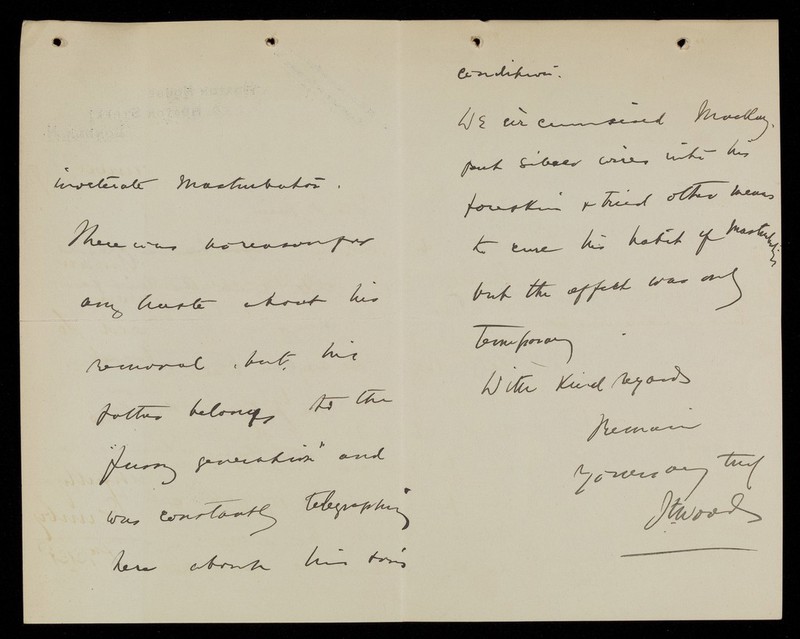 inveterate Masturbator.
There was no reason for
any haste about his
removal, but, his
father belongs to the
"fussy generation" and
was constantly telegraphing
here about his son's
condition.
We circumcised
put silver wires into his
foreskin & tried other means
to cure his habit of Masturbating
but the effect was only
temporary
With Kind regards
Remain
Yours very truly
Woods